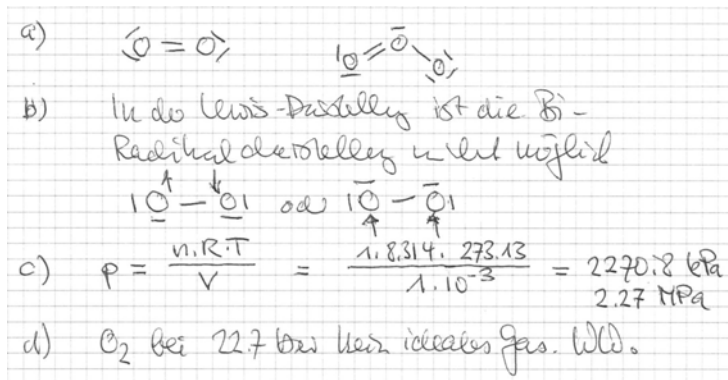 a) ⟨O=O⟩ |O=O-O|
b) In der Lewis-Darstellung ist die Bi-
Radikaldarstellung nicht möglich
|O-O| oder |O-O|
c) p = n.R.T / V = 1.8.314. 273.13 / 1.10⁻³ = 2270.8 kPa
2.27 MPa
d) O₂ bei 22.7 bar kein ideales Gas. WW.